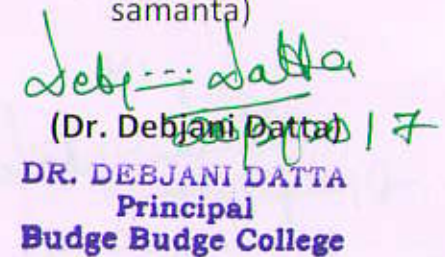 samanta)
Debj... Datta
(Dr. Debjani Datta)
DR. DEBJANI DATTA
Principal
Budge Budge College